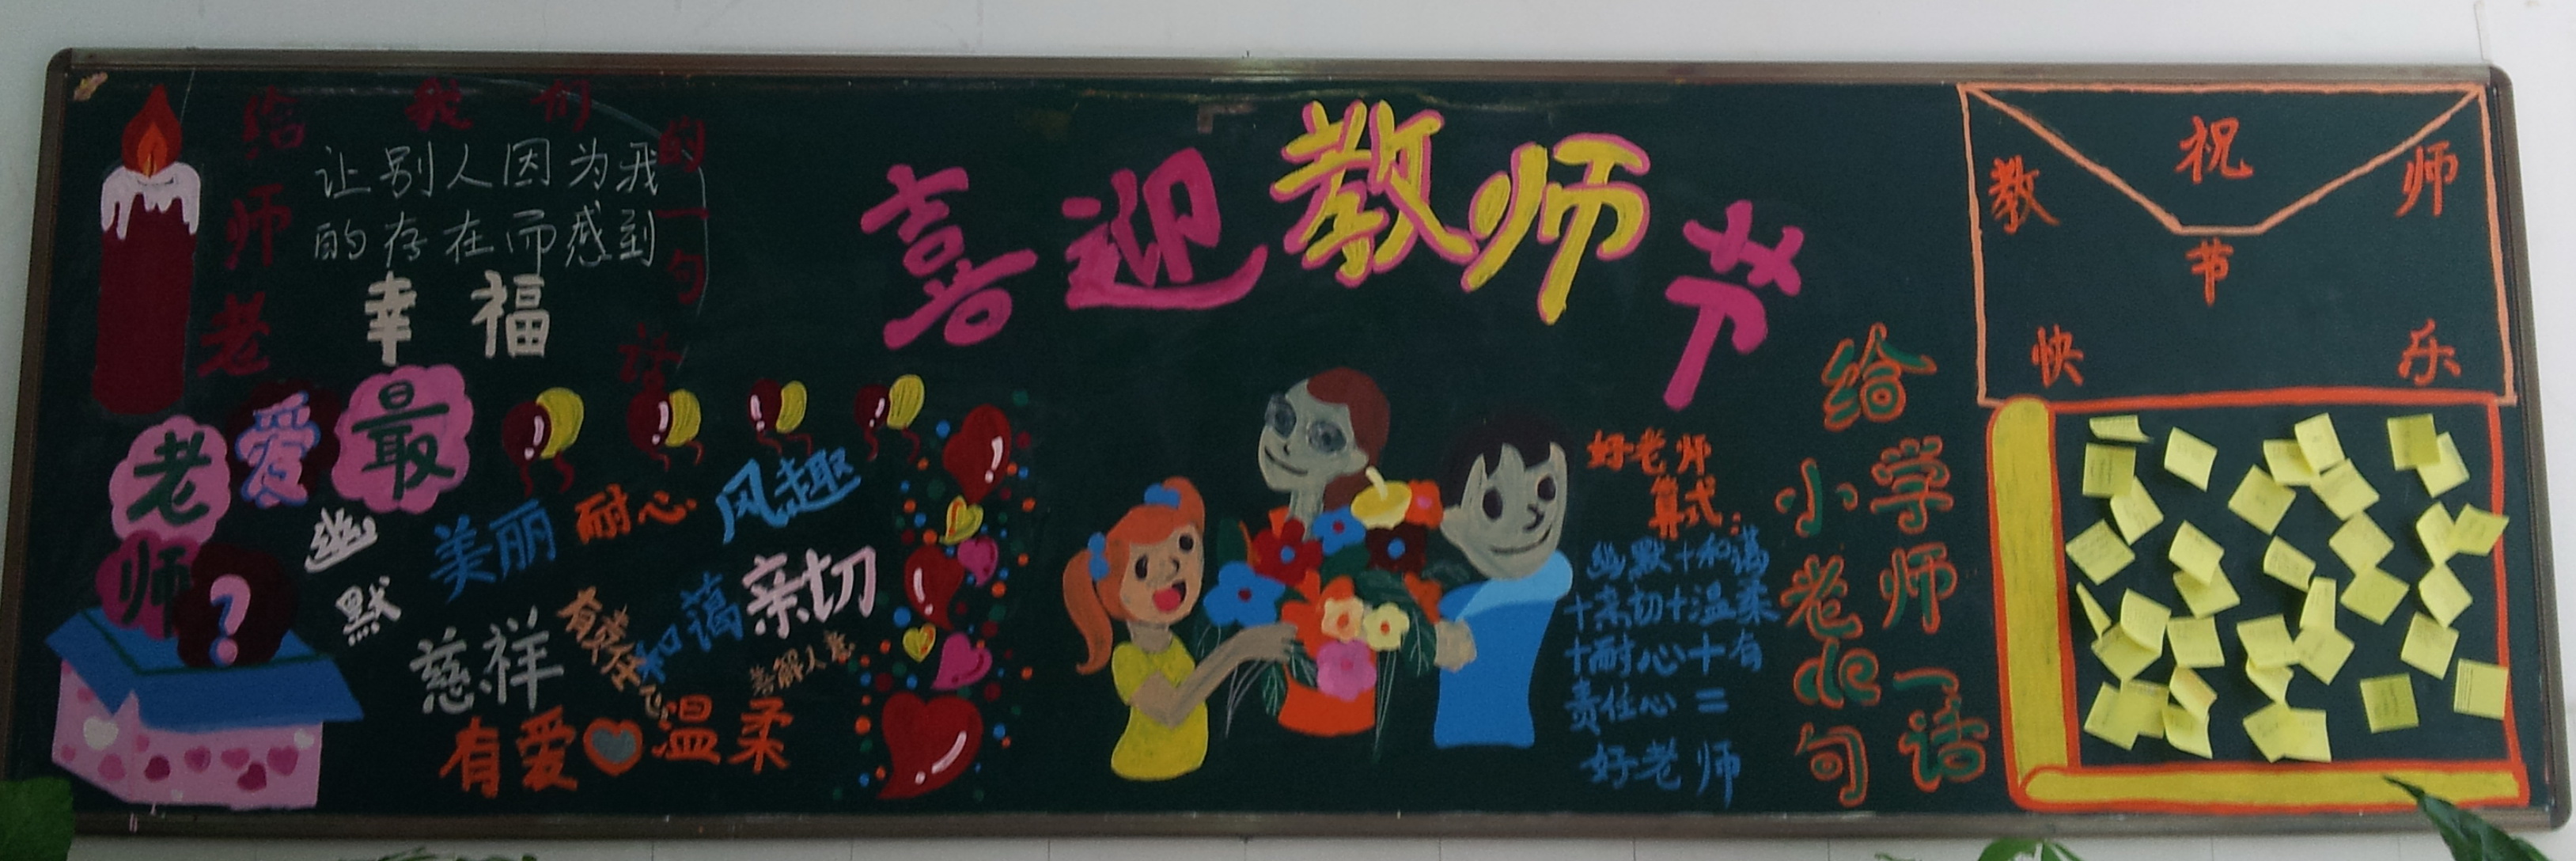 老师给我们的一句话
让别人因为我
的存在而感到
幸福
最爱老师?
幽默
美丽
耐心
风趣
慈祥
有责任心
和蔼
亲切
善解人意
有爱
温柔
喜迎教师节
好老师
算式:
幽默+和蔼
+亲切+温柔
+耐心+有
责任心=
好老师
给小学老师de一句话
祝
教师节
快乐